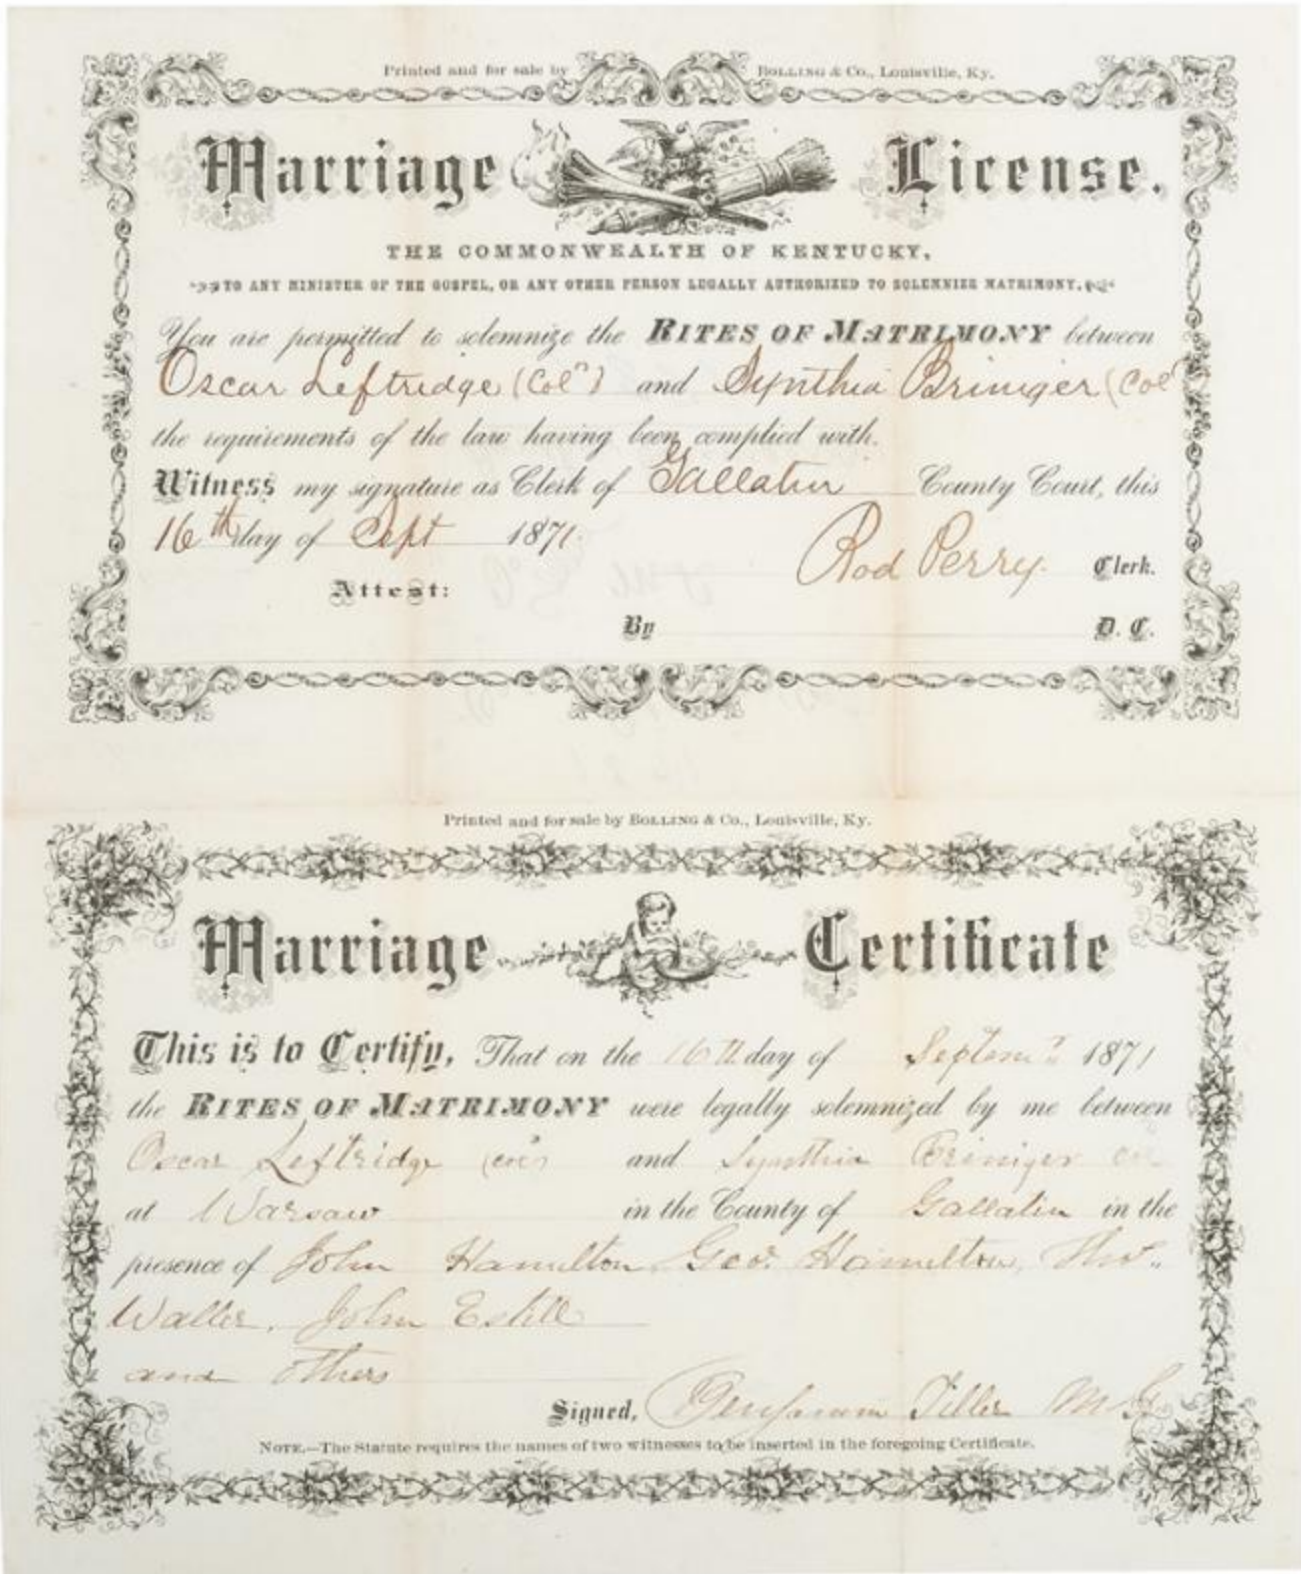 Printed and for sale by BOLLING & Co., Louisville, Ky.
Marriage License.
THE COMMONWEALTH OF KENTUCKY,
TO ANY MINISTER OF THE GOSPEL, OR ANY OTHER PERSON LEGALLY AUTHORIZED TO SOLEMNIZE MATRIMONY.
You are permitted to solemnize the RITES OF MATRIMONY between
Oscar Leftridge (Col'd) and Synthia Briniger (Col
the requirements of the law having been complied with.
Witness my signature as Clerk of Gallatin County Court, this
16th day of Sept 1871.
Rod Perry. Clerk.
Attest:
By D. C.
Printed and for sale by BOLLING & Co., Louisville, Ky.
Marriage Certificate
This is to Certify, That on the 16th day of Septem 1871
the RITES OF MATRIMONY were legally solemnized by me between
Oscar Leftridge (col) and Synthia Briniger col
at Warsaw in the County of Gallatin in the
presence of John Hamilton Geo. Hamilton, Tho's.
Waller, John Estill
and others
Signed, Benjamin Tiller M G
NOTE.—The Statute requires the names of two witnesses to be inserted in the foregoing Certificate.